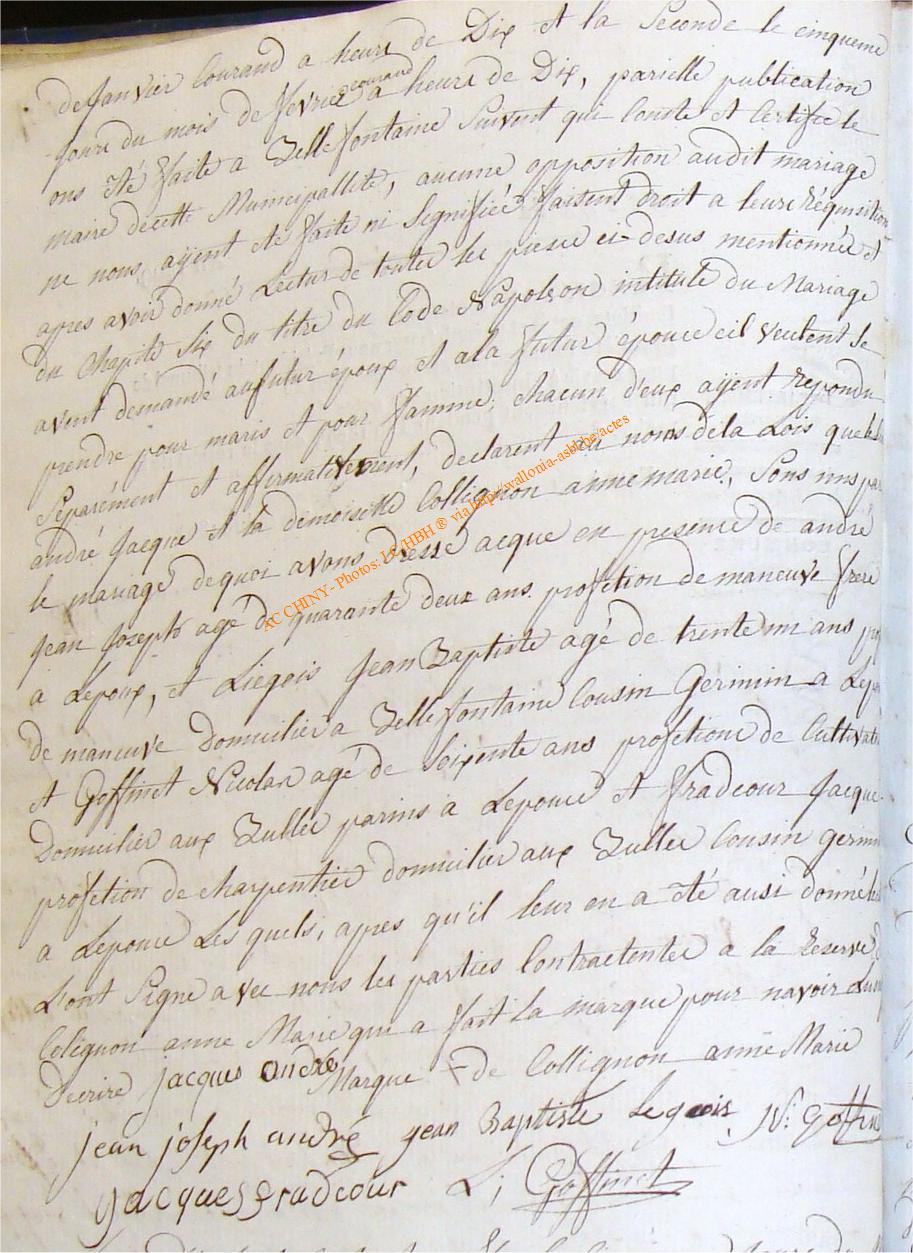 de Janvier Courand a heure de Dix et la Seconde le cinqueme
Jours du mois de fevrier courand a heure de Dix, parielle publication
ons été faite a Bellefontaine Suivent qui Conste et Certifie le
maire decette Municipallité, aucune opposition audit mariage
ne nous ayent ete faite ni Segnifiée faisent droit a leure Réquisition
apres avoir donné Lectur de toutes les piese ci-desus mentionnée et
du Chapite Six du titre du Code Napoleon intitulé du Mariage
avent demandé au futur époux et a la futur épouce cil veulent se
prendre pour maris et pour famme, chacun d'eux ayent repondu
Séparément et affirmativement, declarent au noms de la Lois que le
andré Jacque et la demoiselle Collignon anne marie, Sons uns par
le mariage dequoi avons Dressé acque en presence de andré
Jean Jozeph agé de quarante deux ans profetion de maneuve frere
a Lepoux, et Liegois Jean Baptiste agé de trente un ans
de maneuve Domicilier a Bellefontaine Cousin Germin a
et Goffinet Nicolas agé de Soixente ans profetion de
Domicilier aux Bulles parins a Lepouce et fradcour Jacque
profetion de charpentier domicilier aux Bulles Cousin
a Lepouce Les quels, apres qu'il leur en a été ausi donné
L'ont Signe avec nous les parties Contractentes a la reserve
Colignon anne Marie qui a fait la marque pour navoir
decrire jacques andré Marque de Collignon anne Marie
jean joseph andré jean Baptiste Legois N: Goffin
Jacques fradcour L; Goffinet
AC CHINY - Photos: LS/HBH ® via http://wallonia-asbl.be/actes